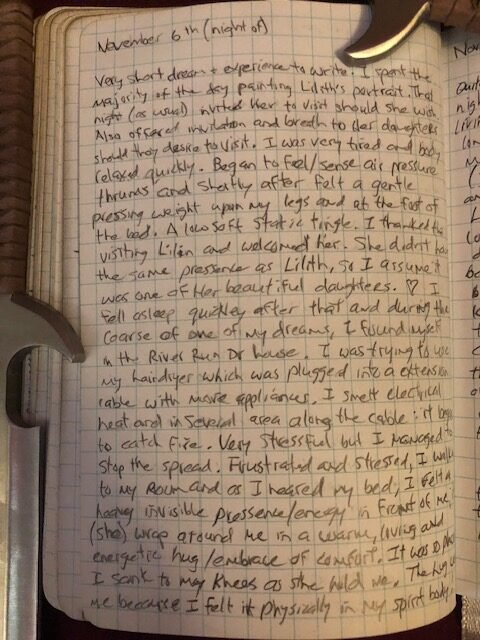 November 6th (night of)
Very short dream + experience to write. I spent the
majority of the day painting Lilith's portrait. That
night (as usual) invited Her to visit should she wish.
Also offered invitation and breath to Her daughters
should they desire to visit. I was very tired and body
relaxed quickly. Began to feel/sense air pressure
thrums and shortly after felt a gentle
pressing weight upon my legs and at the foot of
the bed. A low soft static tingle. I thanked the
visiting Lilin and welcomed her. She didn't ha
the same pressence as Lilith, so I assume it
was one of Her beautiful daughters. ♡ I
fell asleep quickley after that and during the
coarse of one of my dreams, I found myself
in the River Run Dr house. I was trying to use
my hairdryer which was plugged into a extension
cable with more appliances. I smelt electrical
heat and in several area along the cable: it bega
to catch fire. Very stressful but I managed to
stop the spread. Frustrated and stressed, I walk
to my room and as I neared my bed, I felt a
heavy invisible pressence/energy in front of me.
(she) wrap around me in a warm, loving and
energetic hug/embrace of comfort. It was so
I sank to my knees as she held me. The hug
me because I felt it physically in my spirit body,
Nov